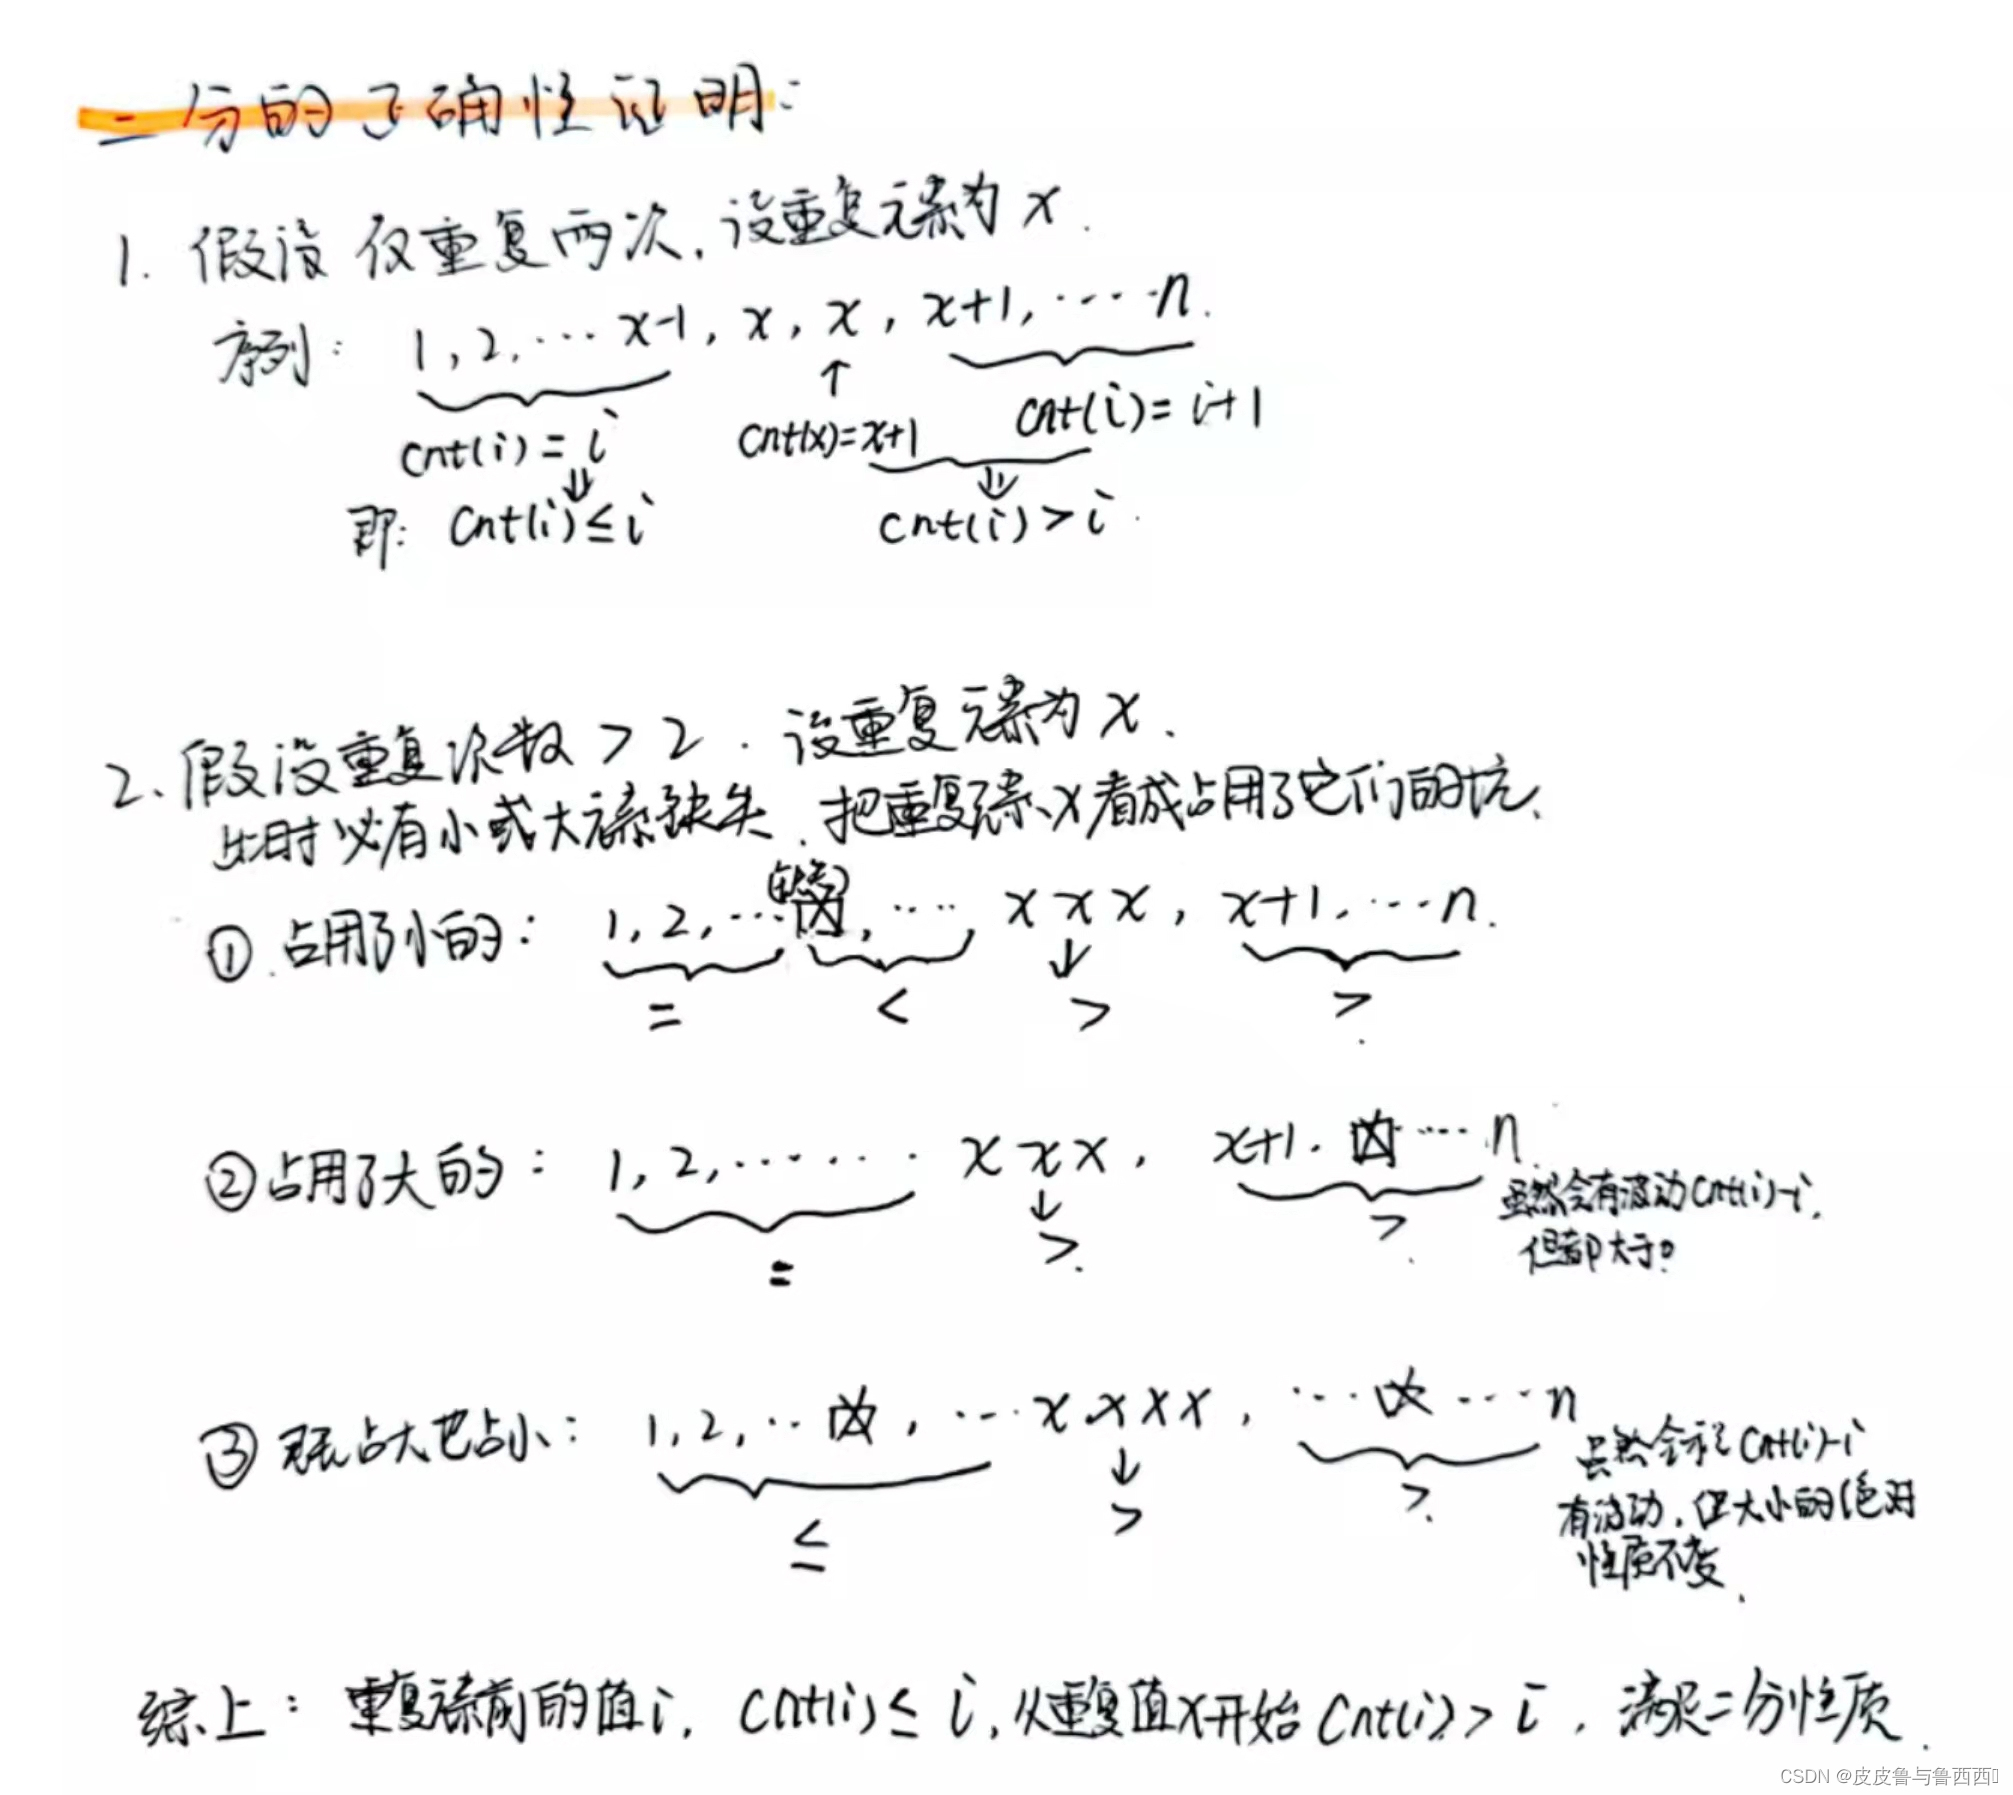 二分的正确性证明:
1. 假设仅重复两次,设重复元素为 x.
序列: 1, 2, ... x-1, x, x, x+1, ... n.
↑
cnt(i) = i cnt(x)=x+1 cnt(i)= i+1
⇓ ⇓
即: cnt(i) ≤ i cnt(i) > i.
2. 假设重复次数 > 2. 设重复元素为 x.
此时必有小或大元素缺失. 把重复元素x看成占用了它们的坑.
① 占用了小的: 1, 2, ... , ... x x x, x+1, ... n.
↓
= < > >
② 占用了大的: 1, 2, ...... x x x, x+1. ... n.
虽然会有波动cnt(i)-i,
↓
但都大于0
= > >
③ 既占大也占小: 1, 2, .. , ... x x x x, ... ... n
虽然会令 cnt(i)-i
↓
有波动,但大小的绝对
≤ > >
性质不变.
综上: 重复元素前的值i, cnt(i) ≤ i, 从重复值x开始 cnt(i) > i, 满足二分性质.
CSDN @皮皮鲁与鲁西西